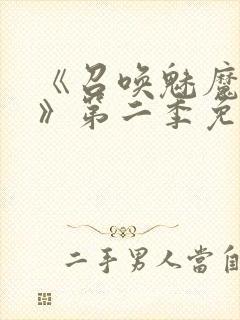 《召唤魅魔
》第二季免
二手男人當自